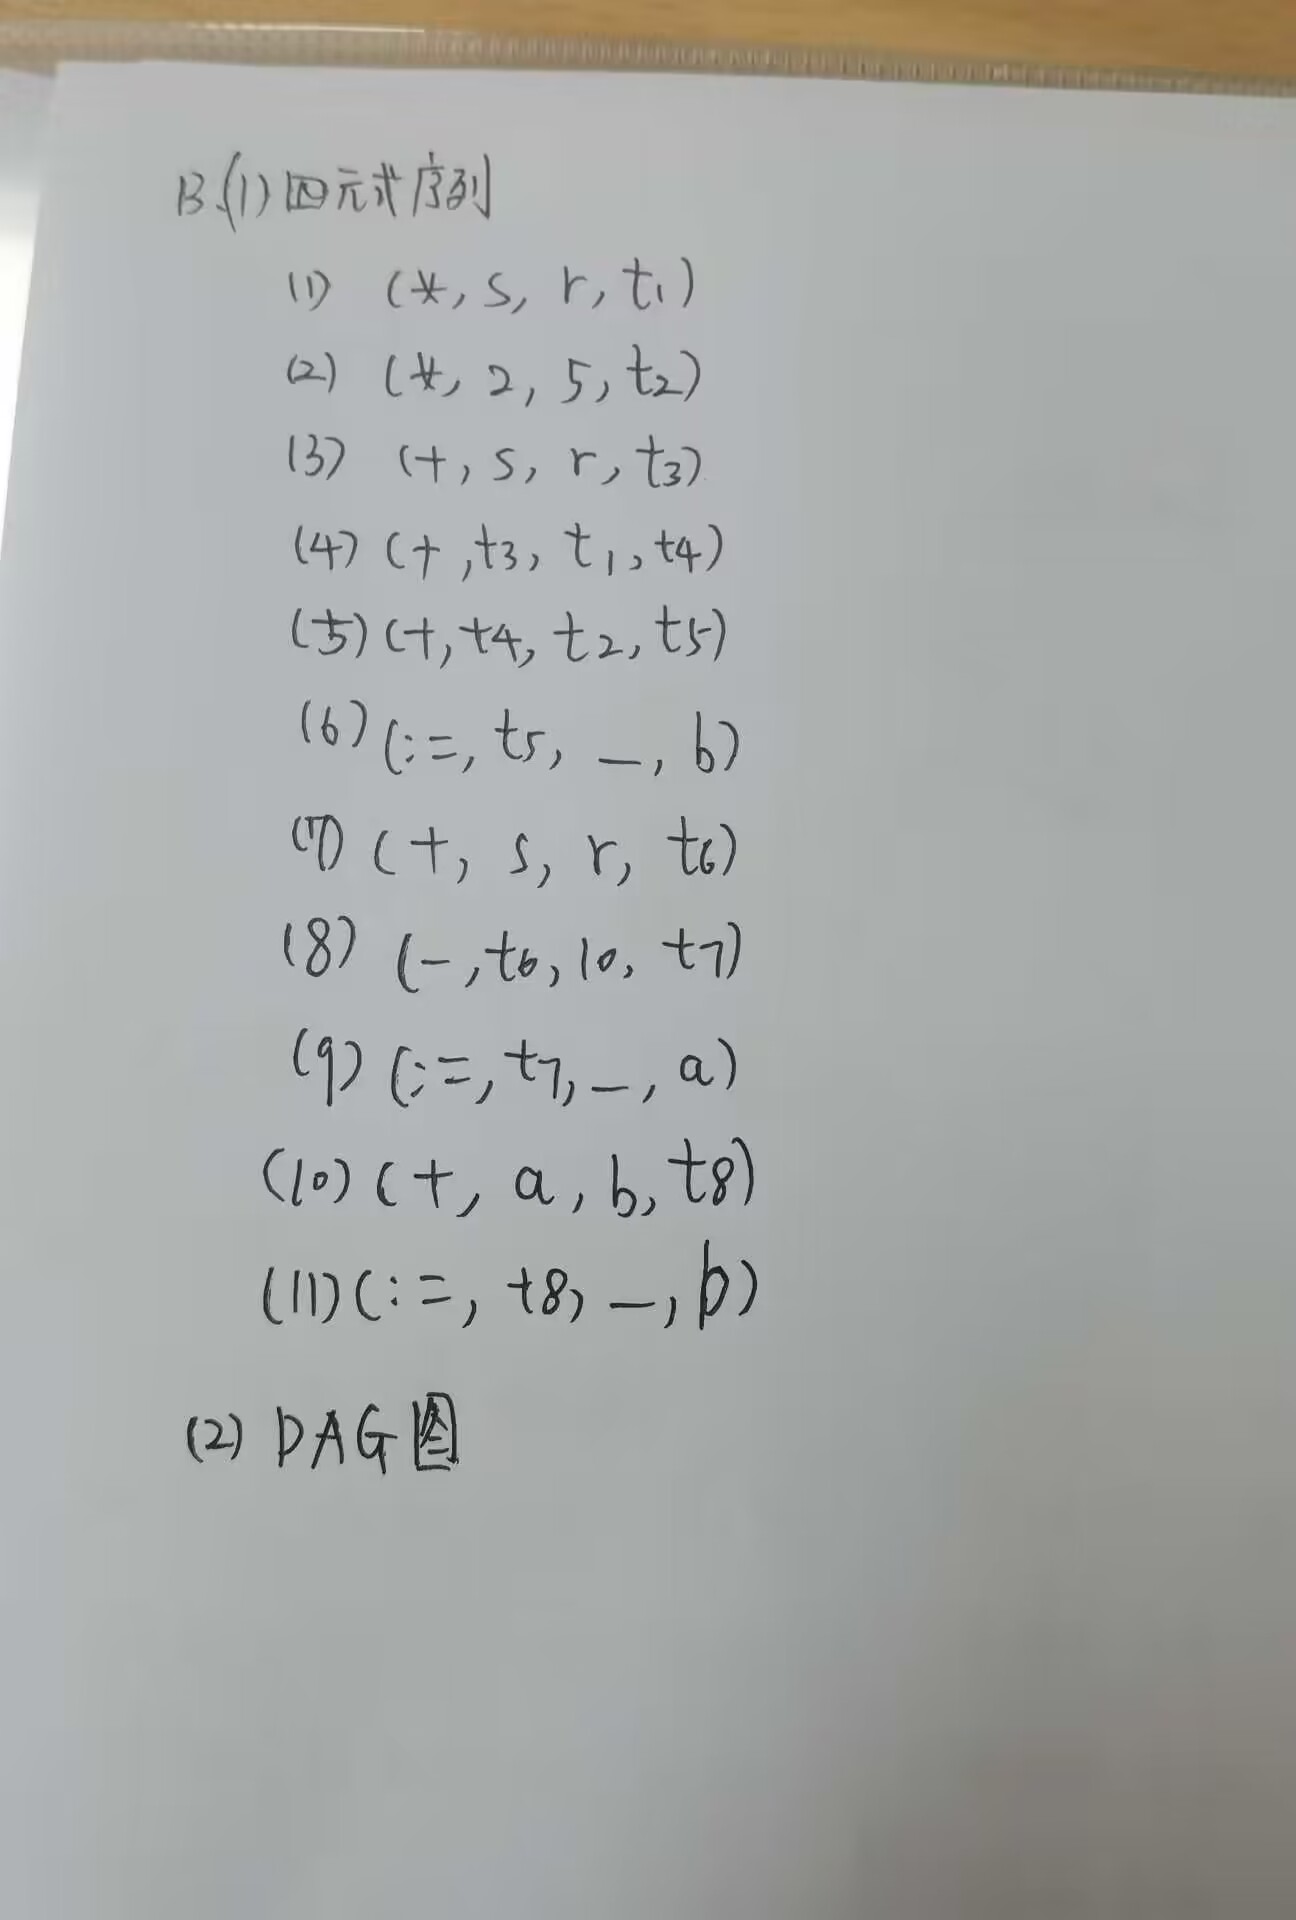 B.(1)四元式序列
(1) (*, s, r, t1)
(2) (*, 2, 5, t2)
(3) (+, s, r, t3)
(4) (+, t3, t1, t4)
(5) (+, t4, t2, t5)
(6) (:=, t5, _, b)
(7) (+, s, r, t6)
(8) (-, t6, 10, t7)
(9) (:=, t7, _, a)
(10) (+, a, b, t8)
(11) (:=, t8, _, b)
(2) DAG图